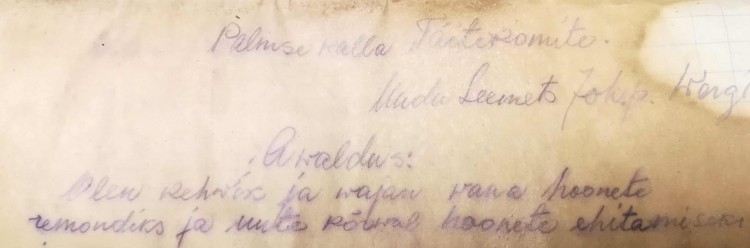 Palmse walla Täitekomite.
Madu Leemets Jok.p. Wergi
Awaldus:
Olen kehwix ja wajan wana hoonete
remondiks ja uute kõrwal hoonete ehitamiseks